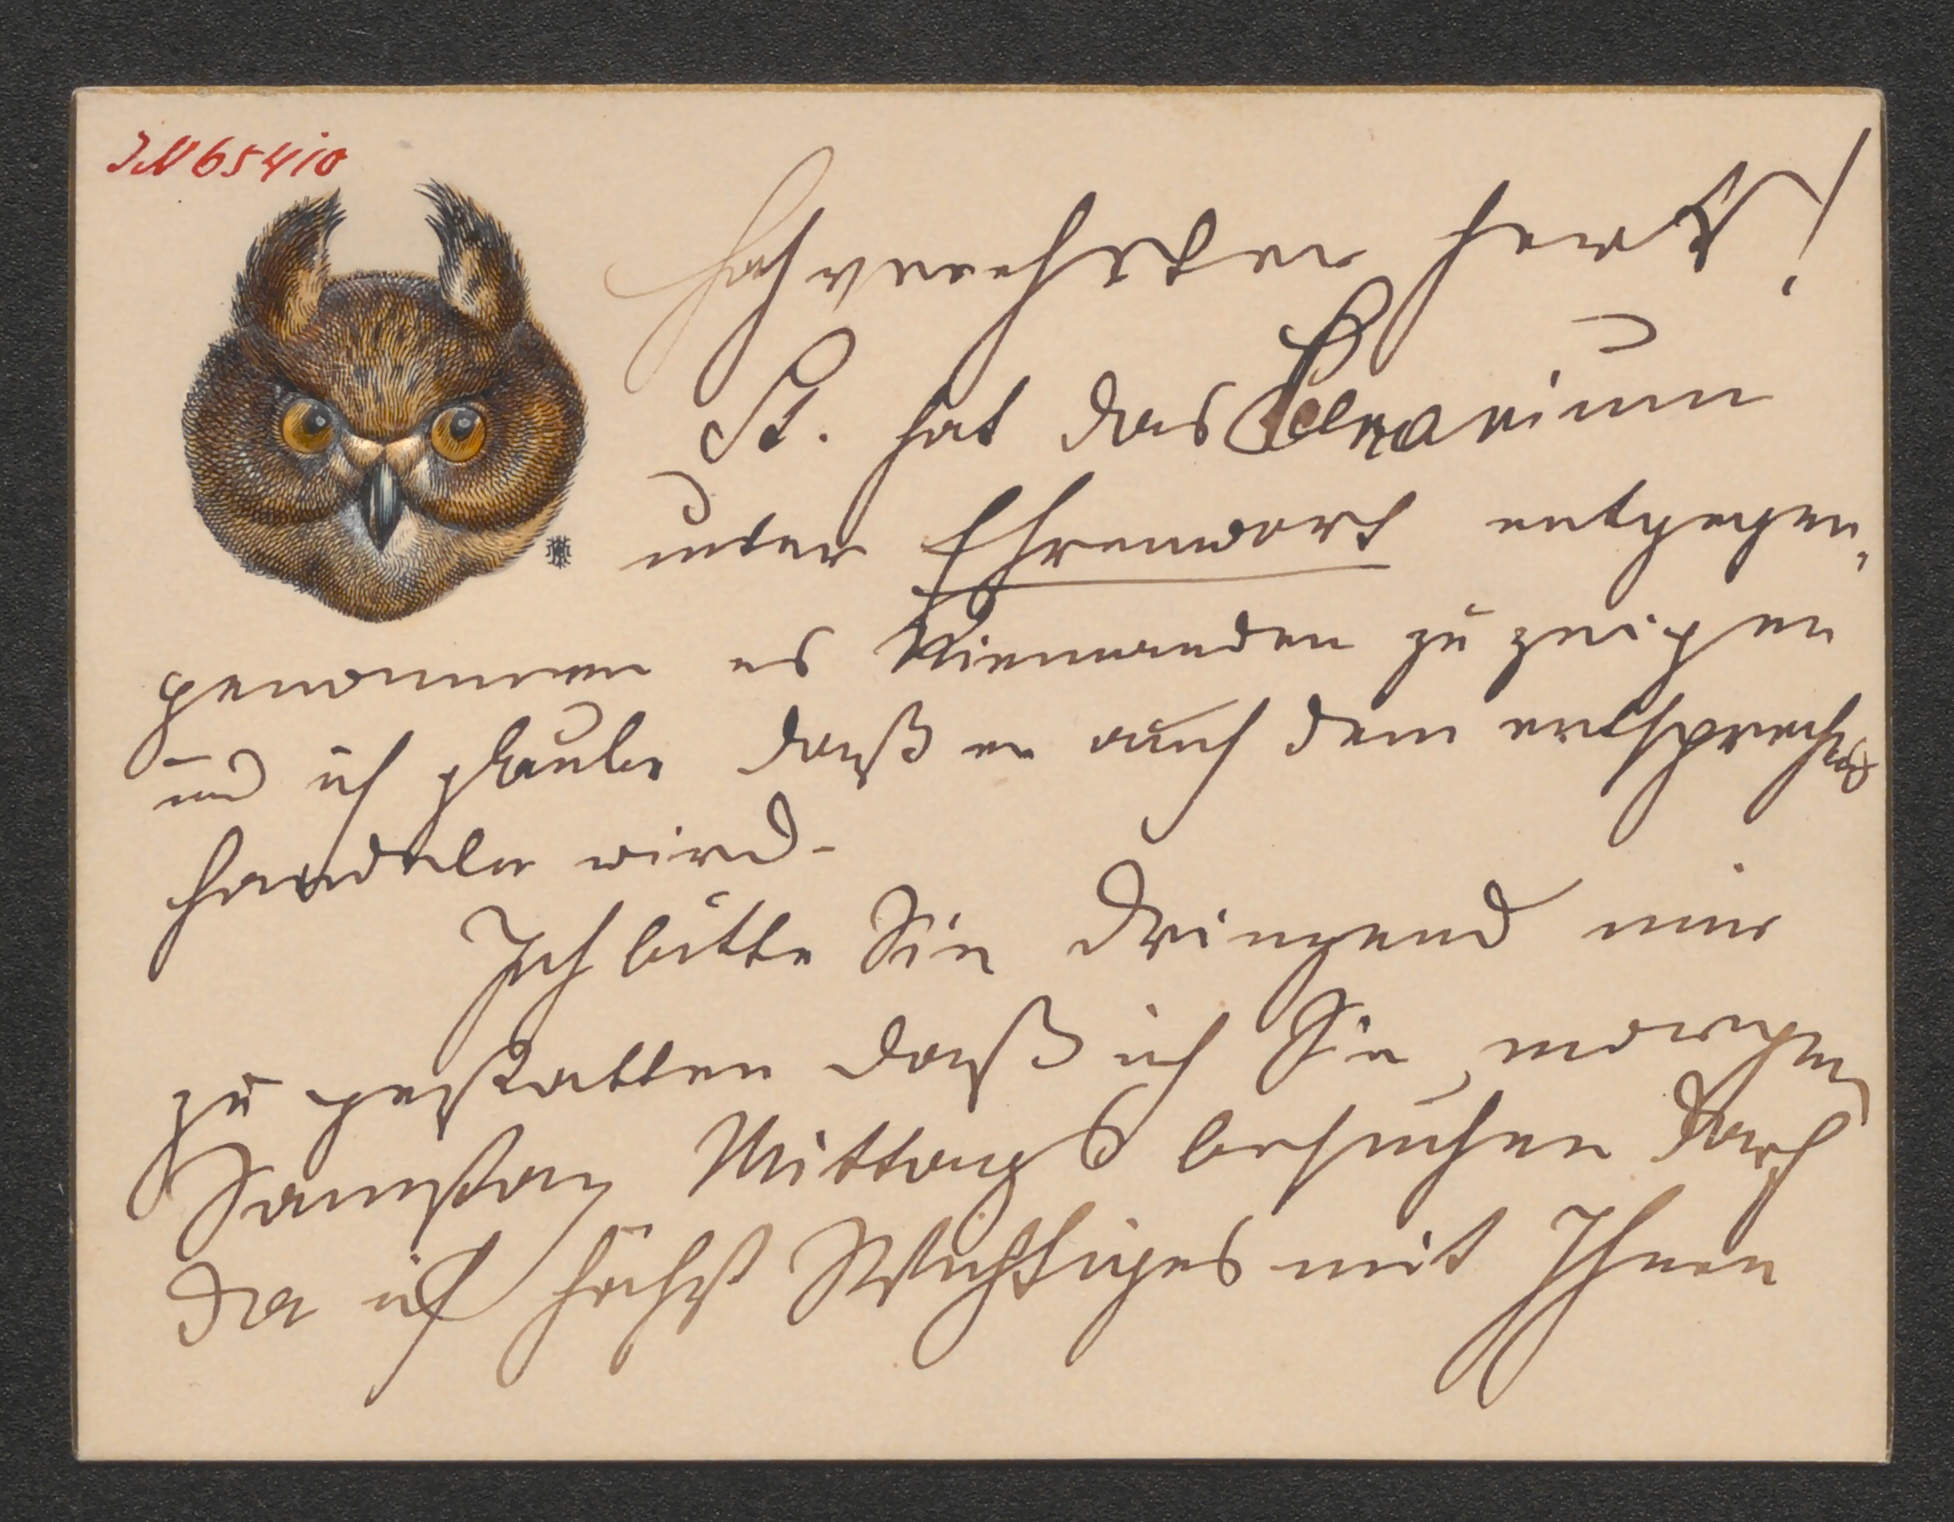 IN 65410
Hochverehrter Herr!
St. hat das Scenarium
unter Ehrenwort entgegen,
genommen es Niemanden zu zeigen
und ich glaube daß er auch dem entsprechend
handeln wird.
Ich bitte Sie dringend mir
zu gestatten daß ich Sie morgen
Samstag Mittags besuchen darf
da ich höchst Wichtiges mit Ihnen